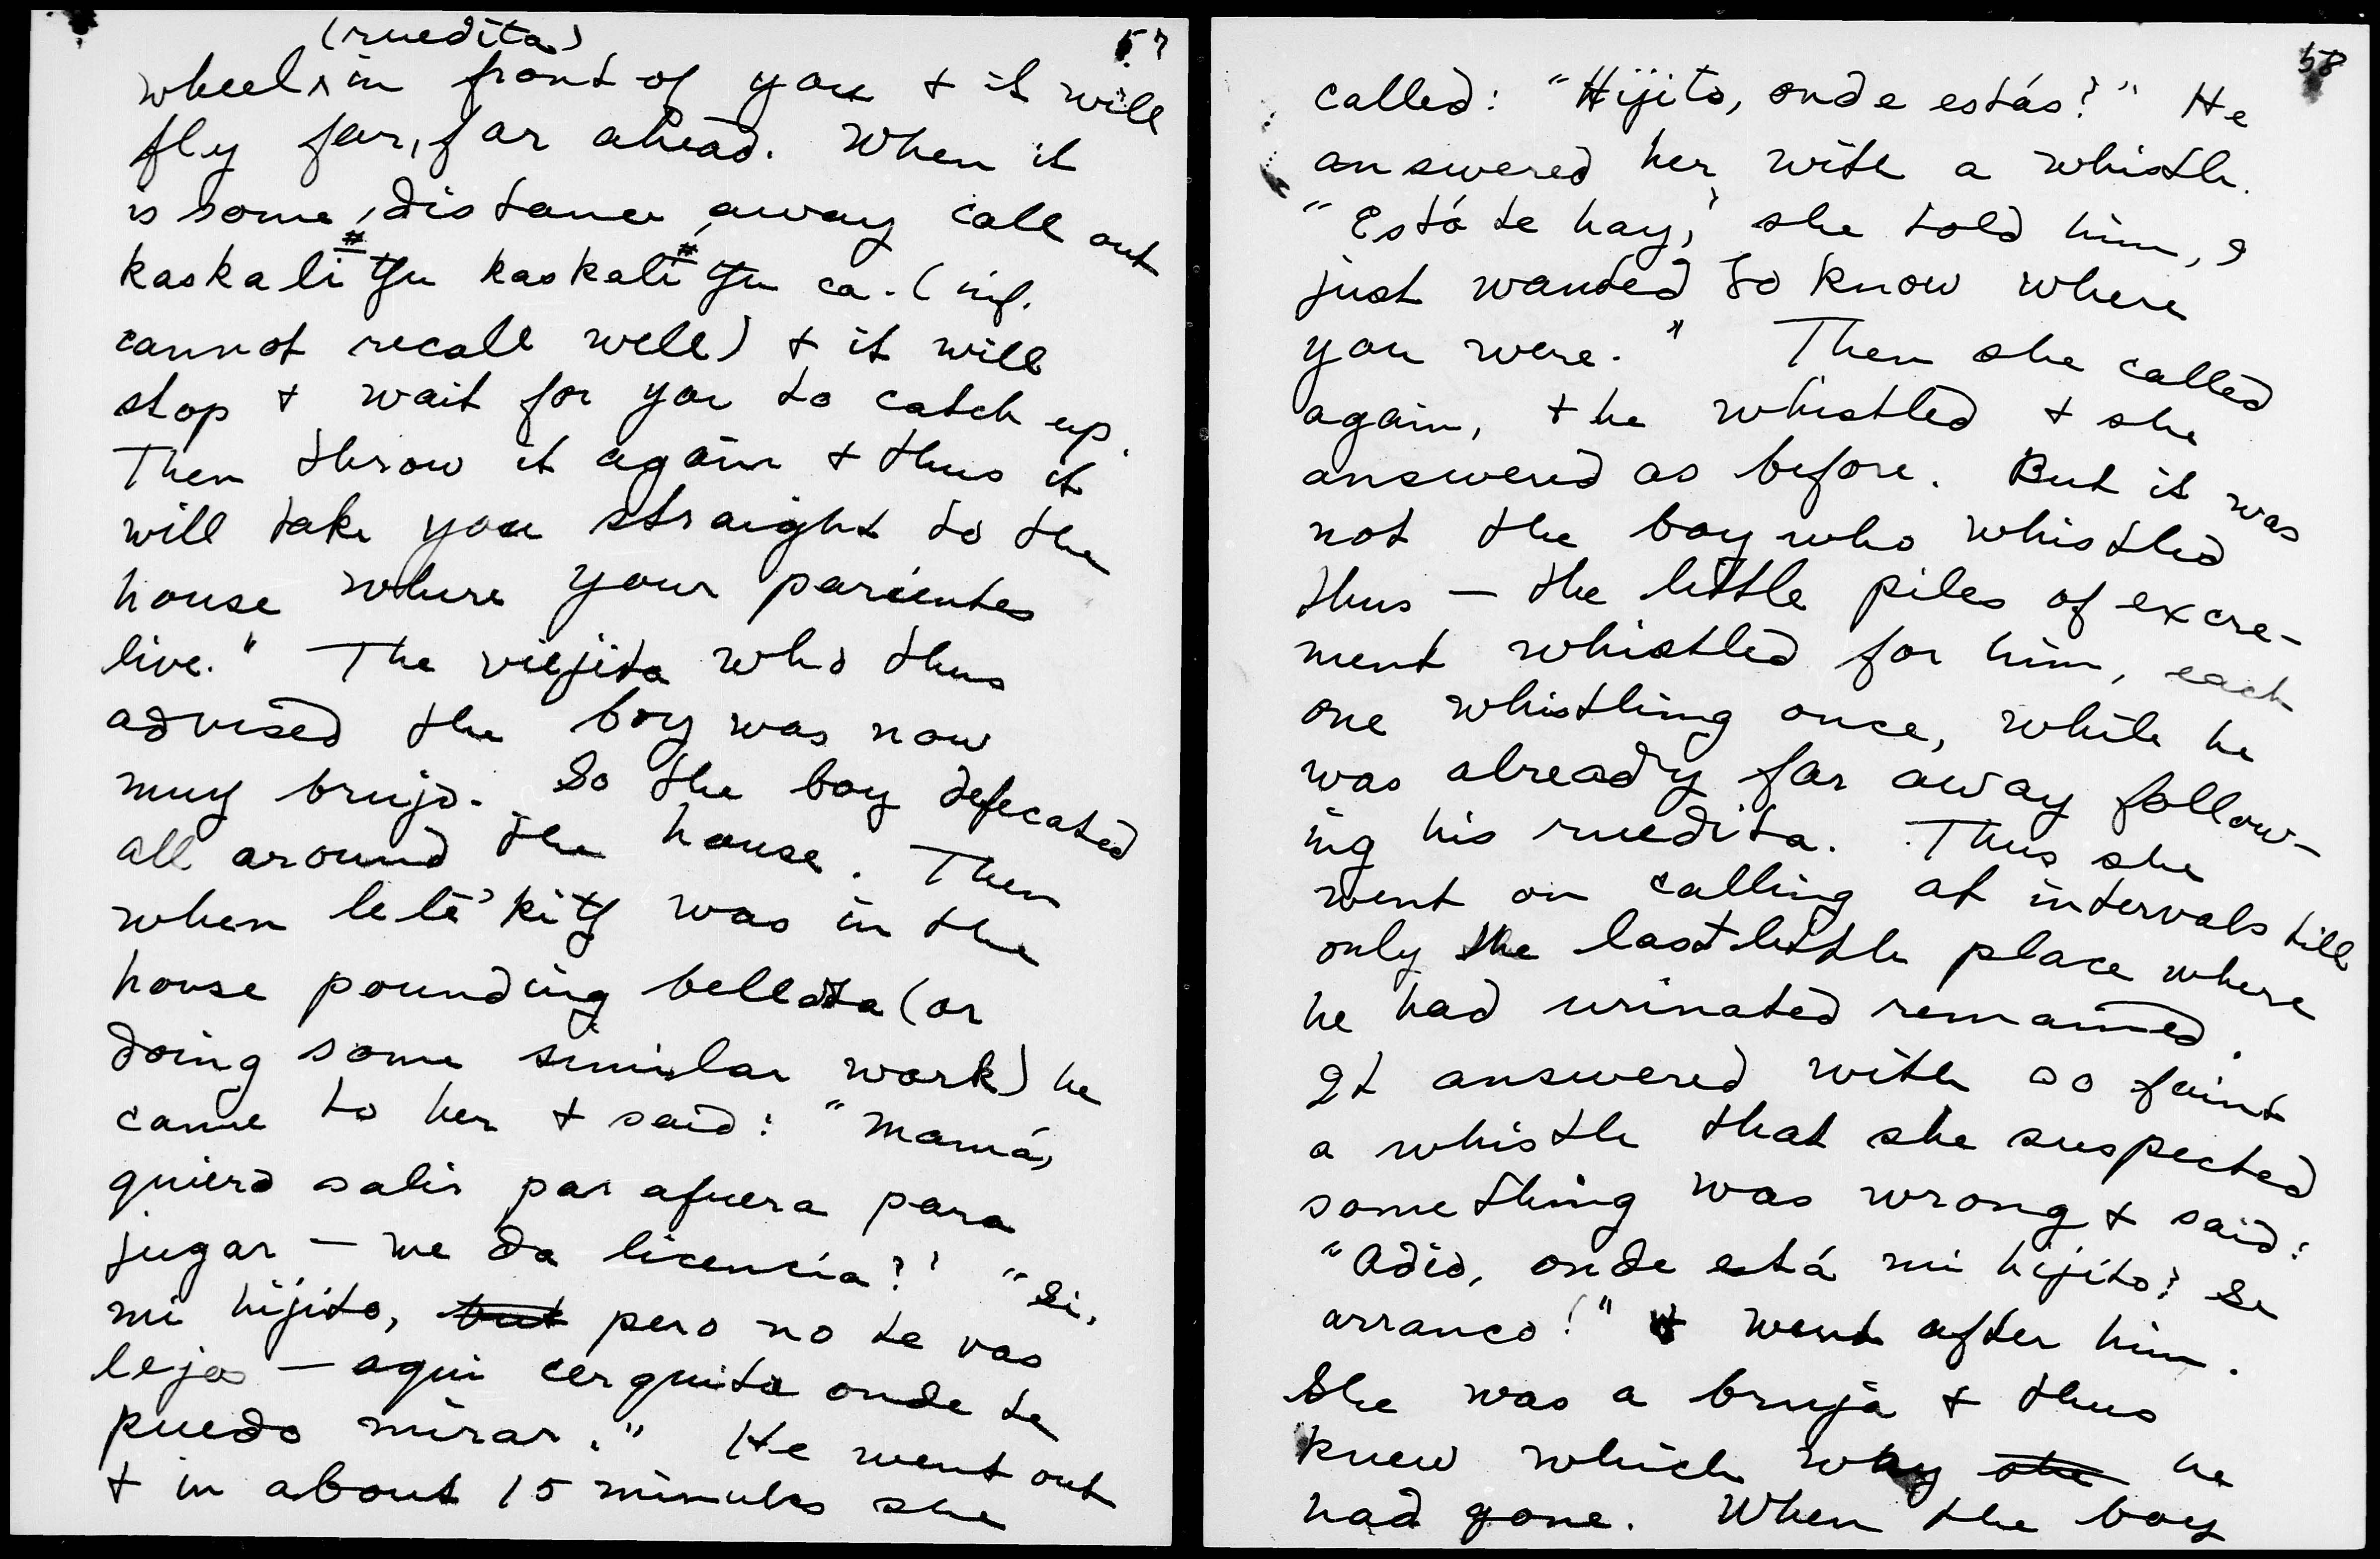 57
(ruedita)
wheel ^ in front of you + it will
fly far, far ahead. When it
is some distance away call out
kaskalitʃu kaskalitʃu ca. (inf.
cannot recall well) + it will
stop + wait for you to catch up.
Then throw it again + thus it
will take you straight to the
house where your parientes
live." The viejita who thus
advised the boy was now
muy brujo. So the boy defecated
all around the house. Then
when lele'kitʃ was in the
house pounding bellota (or
doing some similar work) he
came to her + said: "Mamá,
quiero salir par afuera para
jugar — me da licencia?" "Si,
mi hijito, but pero no te vas
lejos — aqui cerquita onde te
puedo mirar." He went out
+ in about 15 minutes she
58
called: "Hijito, onde estás?" He
answered her with a whistle.
"Está te hay," she told him, I
just wanted to know where
you were." Then she called
again, + he whistled + she
answered as before. But it was
not the boy who whistled
thus — the little piles of excre-
ment whistled for him, each
one whistling once, while he
was already far away follow-
ing his ruedita. Thus she
went on calling at intervals till
only the last little place where
he had urinated remained.
It answered with so faint
a whistle that she suspected
something was wrong + said:
"Adio, onde está mi hijito? Se
arranco!" + went after him.
She was a bruja + thus
knew which way she he
had gone. When the boy